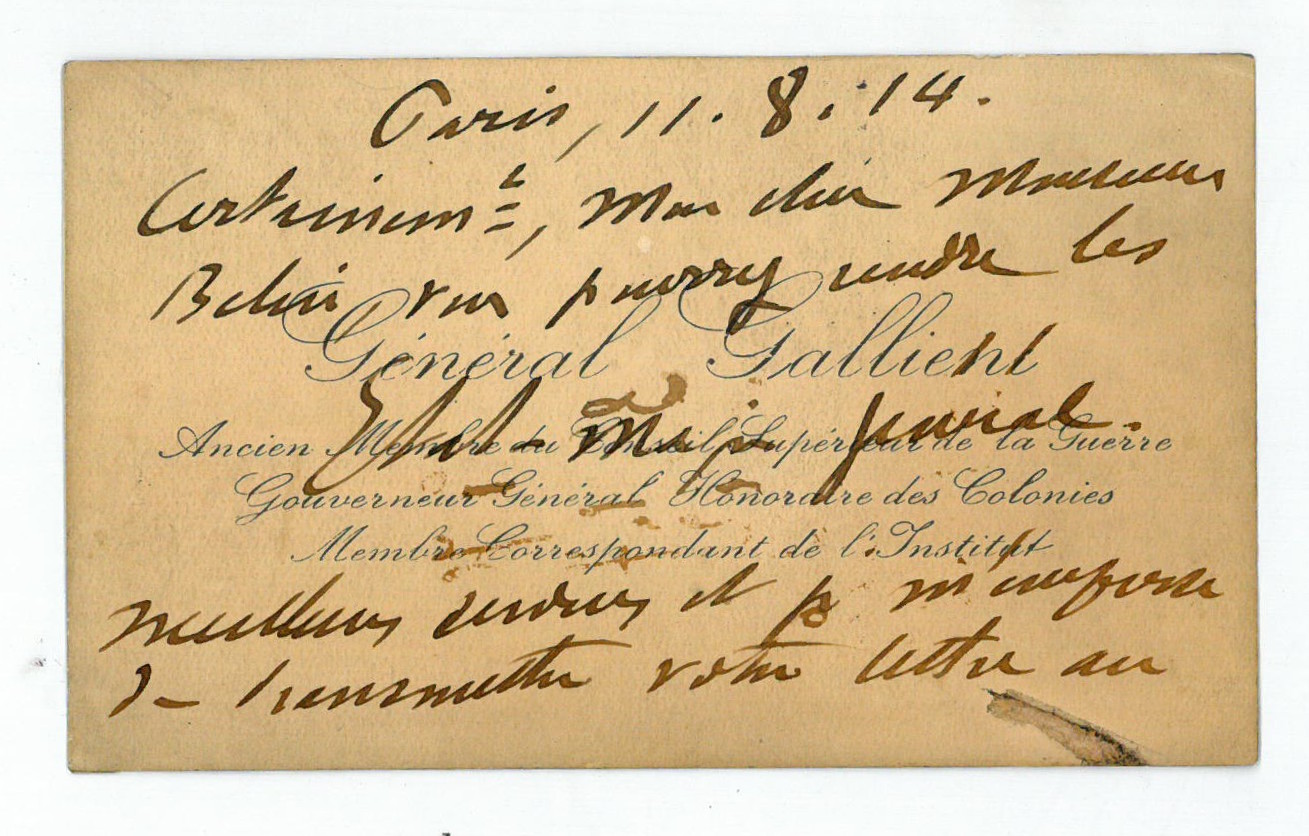 Paris, 11. 8. 14.
Certainemt, Mon cher Monsieur
vous pourrez rendre les
Général Gallieni
Ancien Membre du Conseil Supérieur de la Guerre
Gouverneur Général Honoraire des Colonies
Membre Correspondant de l'Institut
meilleurs services et je m'empresse
de transmettre votre lettre au